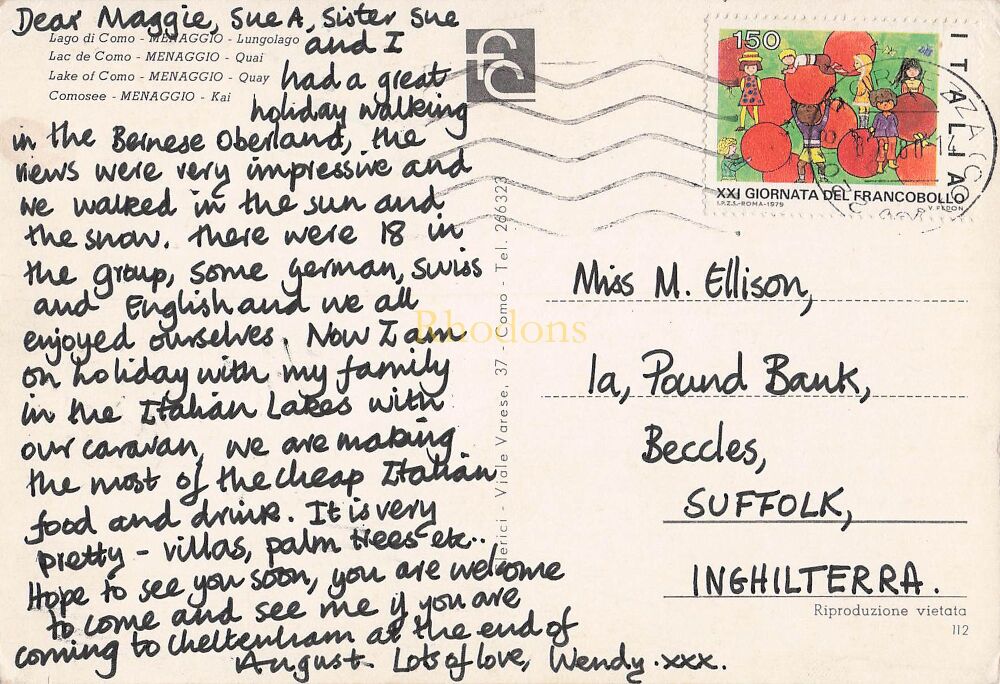 Dear Maggie, Sue A, Sister Sue
Lago di Como - MENAGGIO - Lungolago
and I
Lac de Como - MENAGGIO - Quai
Lake of Como - MENAGGIO - Quay
had a great
Comosee - MENAGGIO - Kai
holiday walking
in the Bernese Oberland, the
views were very impressive and
we walked in the sun and
the snow. There were 18 in
the group, some German, Swiss
and English and we all
enjoyed ourselves. Now I am
on holiday with my family
in the Italian Lakes with
our caravan, we are making
the most of the cheap Italian
food and drink. It is very
pretty - villas, palm trees etc..
Hope to see you soon, you are welcome
to come and see me if you are
coming to Cheltenham at the end of
August. Lots of love, Wendy. xxx.
lerici - Viale Varese, 37 - Como - Tel. 266323
150
ITALIA
XXI GIORNATA DEL FRANCOBOLLO
I.P.Z.S.-ROMA-1979
V. FEDON
Miss M. Ellison,
1a, Pound Bank,
Beccles,
SUFFOLK,
INGHILTERRA.
Riproduzione vietata
112
Rhodons